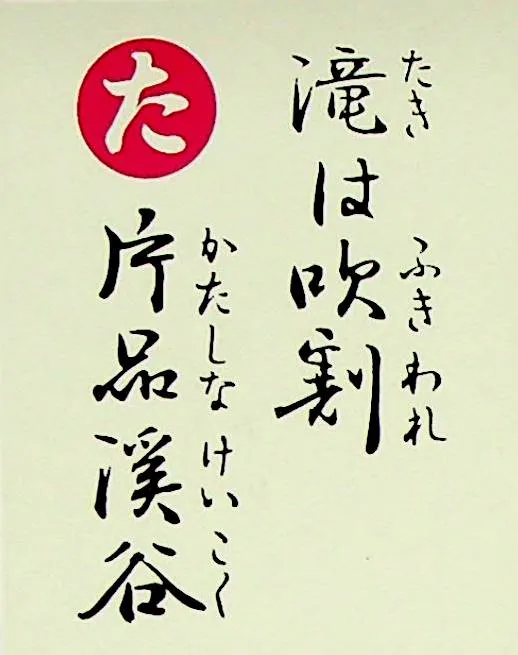 滝は吹割
たき ふきわれ
た
片品渓谷
かたしな けいこく